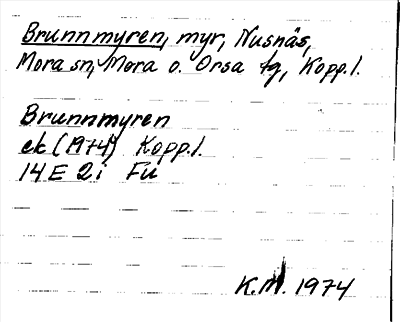 Brunnmyren, myr, Nusnäs,
Mora sn, Mora o. Orsa tg, Kopp.l.
Brunnmyren
ek (1974) Kopp.l.
14 E 2i Fu
K.M. 1974